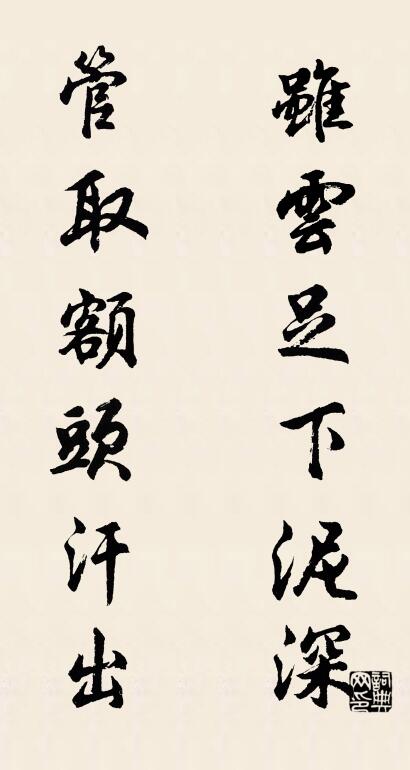 雖雲足下泥深
管取額頭汗出
詞典
网